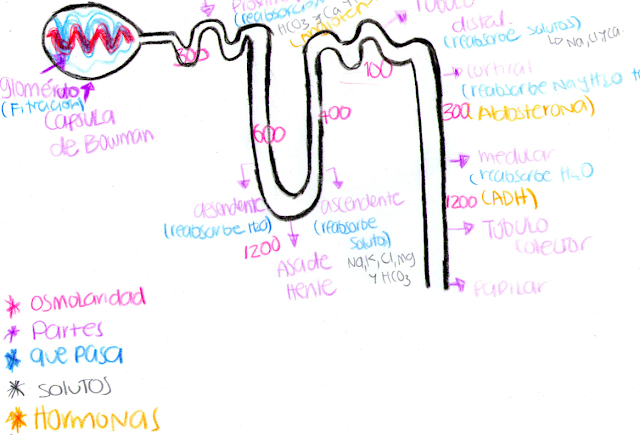 Túbulo
distal
(reabsorbe solutos)
Na, Cl y Ca
HCO3 y Ca y
300
100
glomérulo
(Filtración)
Capsula
de Bowman
cortical
(reabsorbe Na y H2O
300 (Aldosterona)
600
400
medular
(reabsorbe H2O
1200 (ADH)
desendente
(reabsorbe H2O)
1200
ascendente
(reabsorbe
soluto)
Na, K, Cl, Mg
y HCO3
Asa de
Henle
Tubulo
colector
Papilar
* Osmolaridad
* Partes
* que pasa
* solutos
* Hormonas